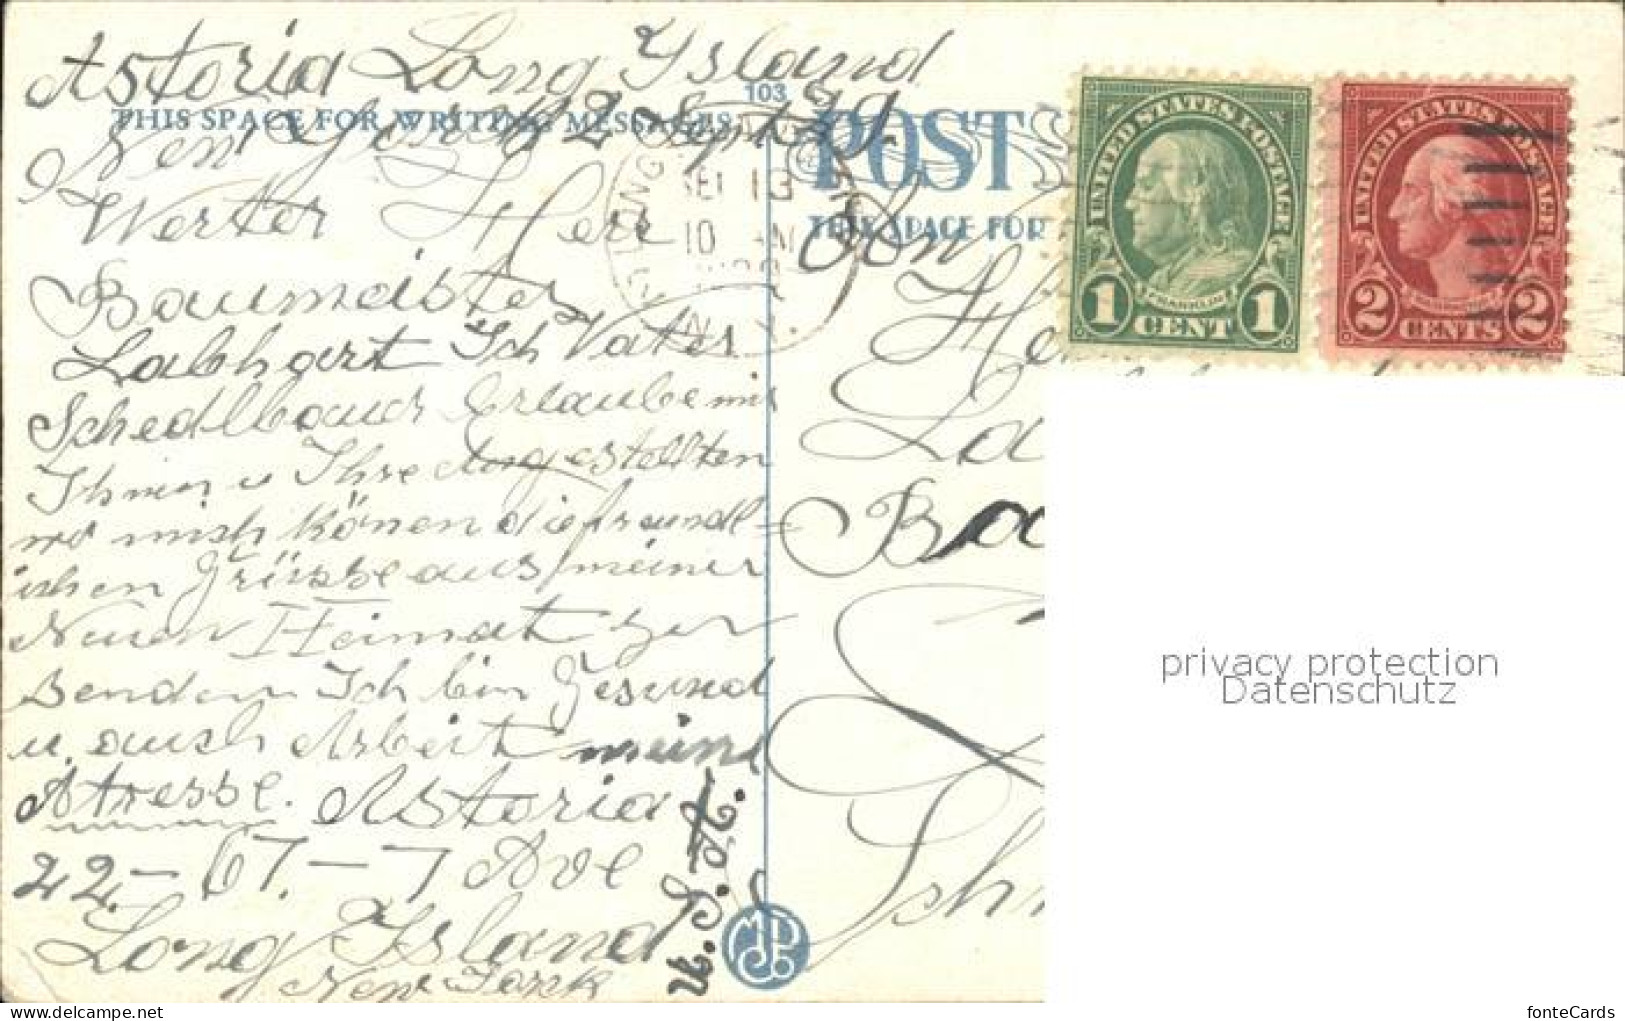 Astoria Long Island
THIS SPACE FOR WRITING MESSAGES
103
New York 12 Sept 29.
Werter Herr
Baumeister
Labhart Ich Vater
Schedlbauer Erlaube mir
Ihnen u Ihre Angestellten
wo mich könen die freundl=
ichen Grüsse aus meiner
Neuen Heimat zu
senden Ich bin Gesund
u. auch Arbeit meine
Atresse. Astoria
22.-67.-7 Ave
Long Island
New York
N.S.A.
SEP 13
10 AM
N.Y.
POST
THIS SPACE FOR
UNITED STATES POSTAGE
FRANKLIN
1 CENT 1
UNITED STATES POSTAGE
WASHINGTON
2 CENTS 2
He
La
Ba
Sch
privacy protection
Datenschutz
fonteCards